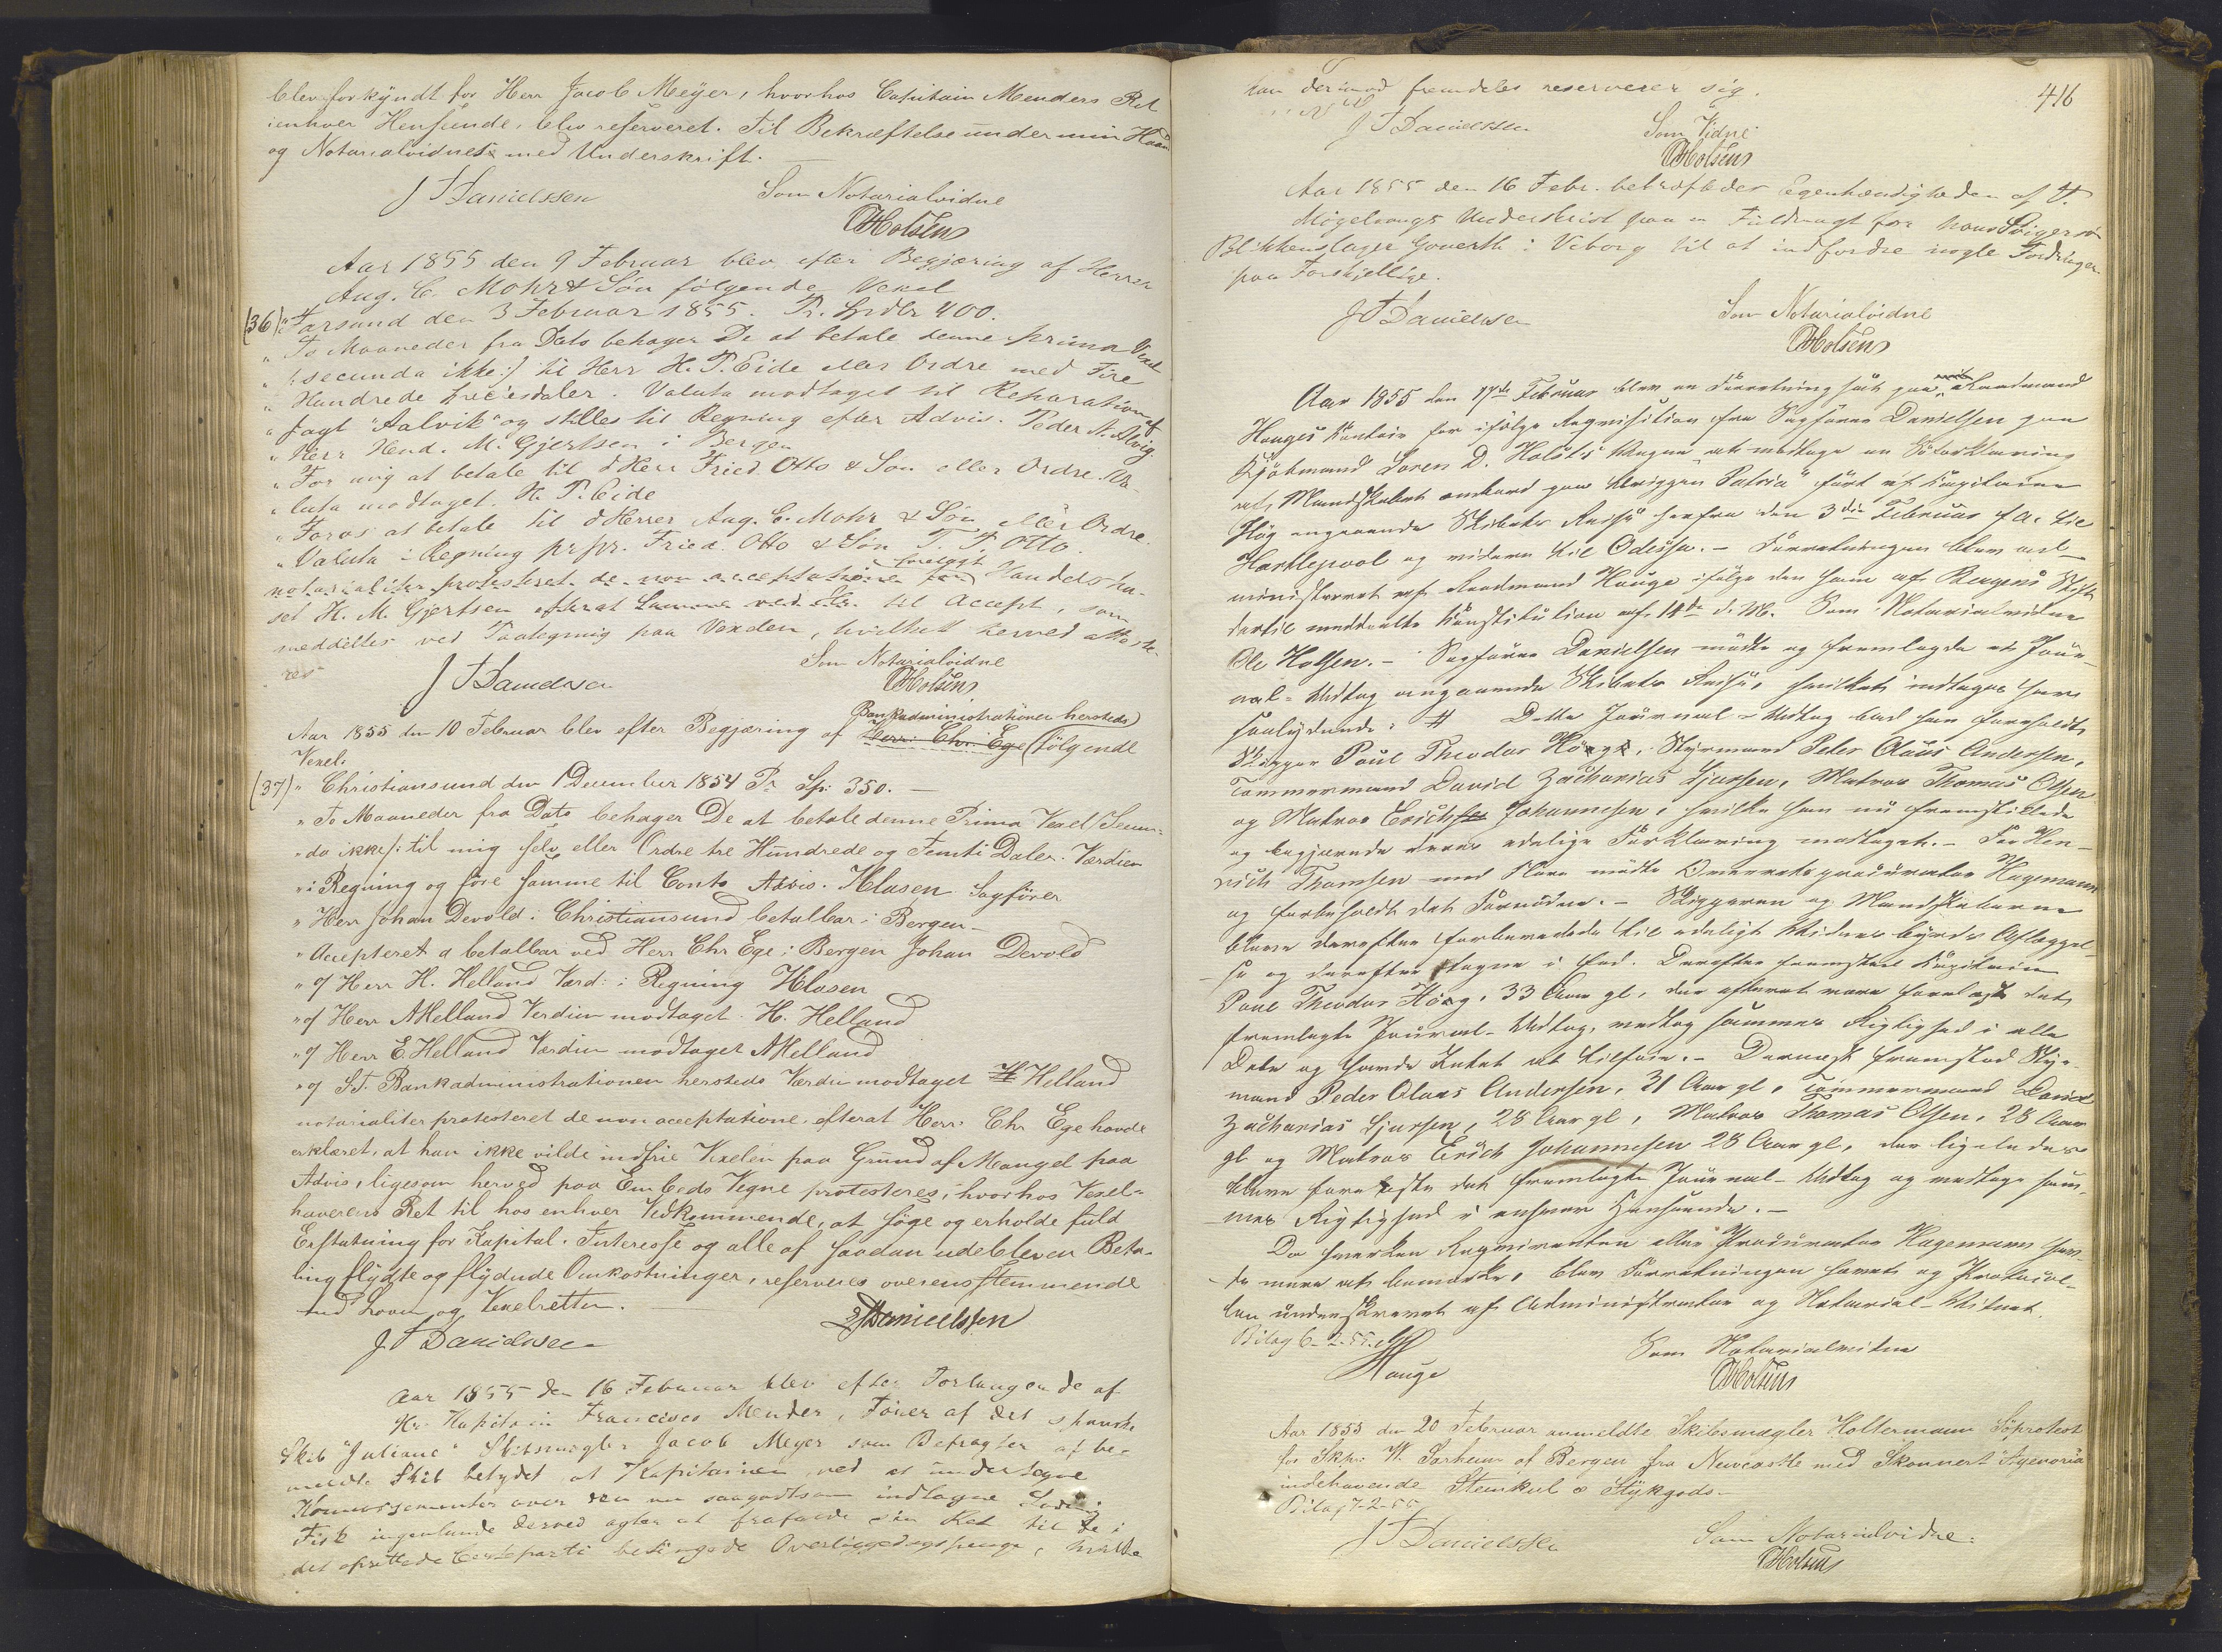 blev forkyndt for Herr Jacob Meyer, hvorhos Capitain Menders Ret
ienhver Henseende, blev reserveret. Til Bekræftelse under min Haand
og Notarialvidnets med Underskrift.
J T Danielssen Som Notarialvidne
O Holsen
Aar 1855 den 9 Februar blev efter Begjæring af Herrer
Aug. C. Mohr & Søn følgende Vexel
(36) "Farsund den 3 Februar 1855. Pr. Spdlr 400.
" To Maaneder fra Dato behager De at betale denne prima Vexel
" (: secunda ikke :) til Herr H. P. Eide eller Ordre med Fire
" Hundrede Speciesdaler. Valuta modtaget til Reparation af
" Jagt "Aalvik" og stilles til Regning efter Advis. Peder N. Alvig
" Herr Hend. M. Gjertsen i Bergen
" For mig at betale til d Herr Fried. Otto & Son eller Ordre. Va-
" luta modtaget. H. P. Eide
" For os at betale til d Herrer Aug. C. Mohr & Søn eller Ordre.
" Valuta i Regning pr pr. Fried. Otto & Søn T. T. Otto.
notarialiter protesteret de non acceptatione forelagt Handelshu-
set H. M. Gjertsen efterat Samme ved Hr. til Accept, som
meddeltes ved Paategning paa Vexelen, hvilket herved atteste-
res
J T Danielssen Som Notarialvidne
O Holsen
Bankadministrationen hersteds
Aar 1855 den 10 Februar blev efter Begjæring af Herr Chr. Ege følgende
Vexel.
(37) " Christiansund den 1 December 1854 Pr Sp: 350. —
" To Maaneder fra Dato behager De at betale denne Prima Vexel (Secun-
" da ikke): til mig selv eller Ordre tre Hundrede og Femti Daler. Værdien
" i Regning og føre samme til Conto Advis. Klasen Sagfører
" Herr Johan Devold i Christiansund betalbar i Bergen —
" Accepteret a betalbar ved Herr Chr Ege i Bergen Johan Devold
" of Herr H. Helland Værd: i Regning Klasen
" of Herr A Helland Verdien modtaget. H. Helland
" of Herr E. Helland Værdien modtaget A Helland
" of S.T. Bankadministrationen hersteds Værdien modtaget Helland
notarialiter protesteret de non acceptatione, efterat Herr Chr Ege havde
erklæret, at han ikke vilde indfrie Vexelen paa Grund af Mangel paa
Advis, ligesom herved paa Embeds Vegne protesteres, hvorhos Vexel-
haverens Ret til hos enhver Vedkommende, at søge og erholde fuld
Erstatning for Kapital, Interesse og alle af saadan udebleven Beta-
ling flydte og flydende Omkostninger, reserveres overensstemmende
med Loven og Vexelretten.
J T Danielssen Danielssen
Aar 1855 den 16 Februar blev efter Forlangende af
Hr. Kapitain Francisco Mender, Fører af det spanske
Skib "Juliane" Skibsmægler Jacob Meyer som Befragter af be-
meldte Skib betydet at Kapitainen ved at undertegne
Konnossementer over den nu saagodtsom indtagne Ladning
Fisk ingenlunde derved agter at frafalde sin Ret til de i
det oprettede Certeparti betingede Overliggedagspenge, hvilke
416
han derimod fremdeles reserverer sig.
J T Danielssen Som Vidne
O Holsen
Aar 1855 den 16 Febr. bekræftedes Egenhændigheden af V.
Mögelvangs Underskrift paa en Fuldmagt for hans Svigersøn
Blikkenslager Goverth i Viborg til at indfordre nogle Fordringer
paa Forskjellige.
J T Danielssen Som Notarialvidne
O Holsen
Aar 1855 den 17de Februar blev en Forretning sat paa Raadmand
Hauges Contoir for ifølge Reqvisition fra Sagfører Danielsen paa
Kjøbmand Søren D. Holsts Vegne at modtage en Søforklaring
af Mandskabet ombord paa Briggen "Patria" ført af Kapitainen
Høeg angaaende Skibets Reise herfra den 3die Februar f. A. til
Hartlepool og videre til Odessa. — Forretningen blev ad-
ministreret af Raadmand Hauge ifølge den ham af Bergens Stift
dertil meddeelte Constitution af 14de d. M. Som Notarialvidne
Ole Holsen. — Sagfører Danielsen mødte og fremlagde et Jour-
nal-Udtog angaaende Skibets Reise, hvilket indtages her
saalydende: # Dette Journal-Udtog bad han foreholdt
Skipper Poul Theodor Høeg, Styrmand Peter Olaus Andersen,
Tømmermand David Zacharias Sjursen, Matros Thomas Olsen
og Matros Erich Johannesen, hvilke han nu fremstillede
og begjærede deres edelige Forklaring modtaget. — For Hen-
rich Thomsen med Flere mødte Overretsprocurator Hagemann
og forbeholdt det Fornødne. — Skipperen og Mandskaberne
bleve derefter forberedede til edeligt Vidnesbyrds Aflæggel-
se og derefter tagne i Eed. Derefter fremstod Kapitain
Poul Theodor Høeg, 33 Aar gl, der efterat være forelæst det
fremlagte Journal-Udtog, vedtog sammes Rigtighed i alle
Dele og havde Intet at tilføie. — Dernæst fremstod Styr-
mand Peder Olaus Andersen, 31 Aar gl, Tømmermand David
Zacharias Sjursen, 28 Aar gl, Matros Thomas Olsen, 28 Aar
gl og Matros Erich Johannesen 28 Aar gl, der ligeledes
bleve forelæste det fremlagte Journal-Udtog og vedtoge sam-
mes Rigtighed i enhver Henseende. —
Da hverken Reqvirenten eller Procurator Hagemann hav-
de mere at bemærke, blev Forretningen hævet og Protocol-
len underskrevet af Administrator og Notarial-Vitnet.
Bilag 6-2-55.
Hauge Som Notarialvitne
O Holsen
Aar 1855 den 20 Februar anmeldte Skibsmægler Holtermann Søprotest
for Skp: W. Sørheim af Bergen fra Newcastle med Skonnert "Ageroria"
indehavende Steenkul o Stykgods —
Bilag 7-2-55
J T Danielssen Som Notarialvidne:
O Holsen